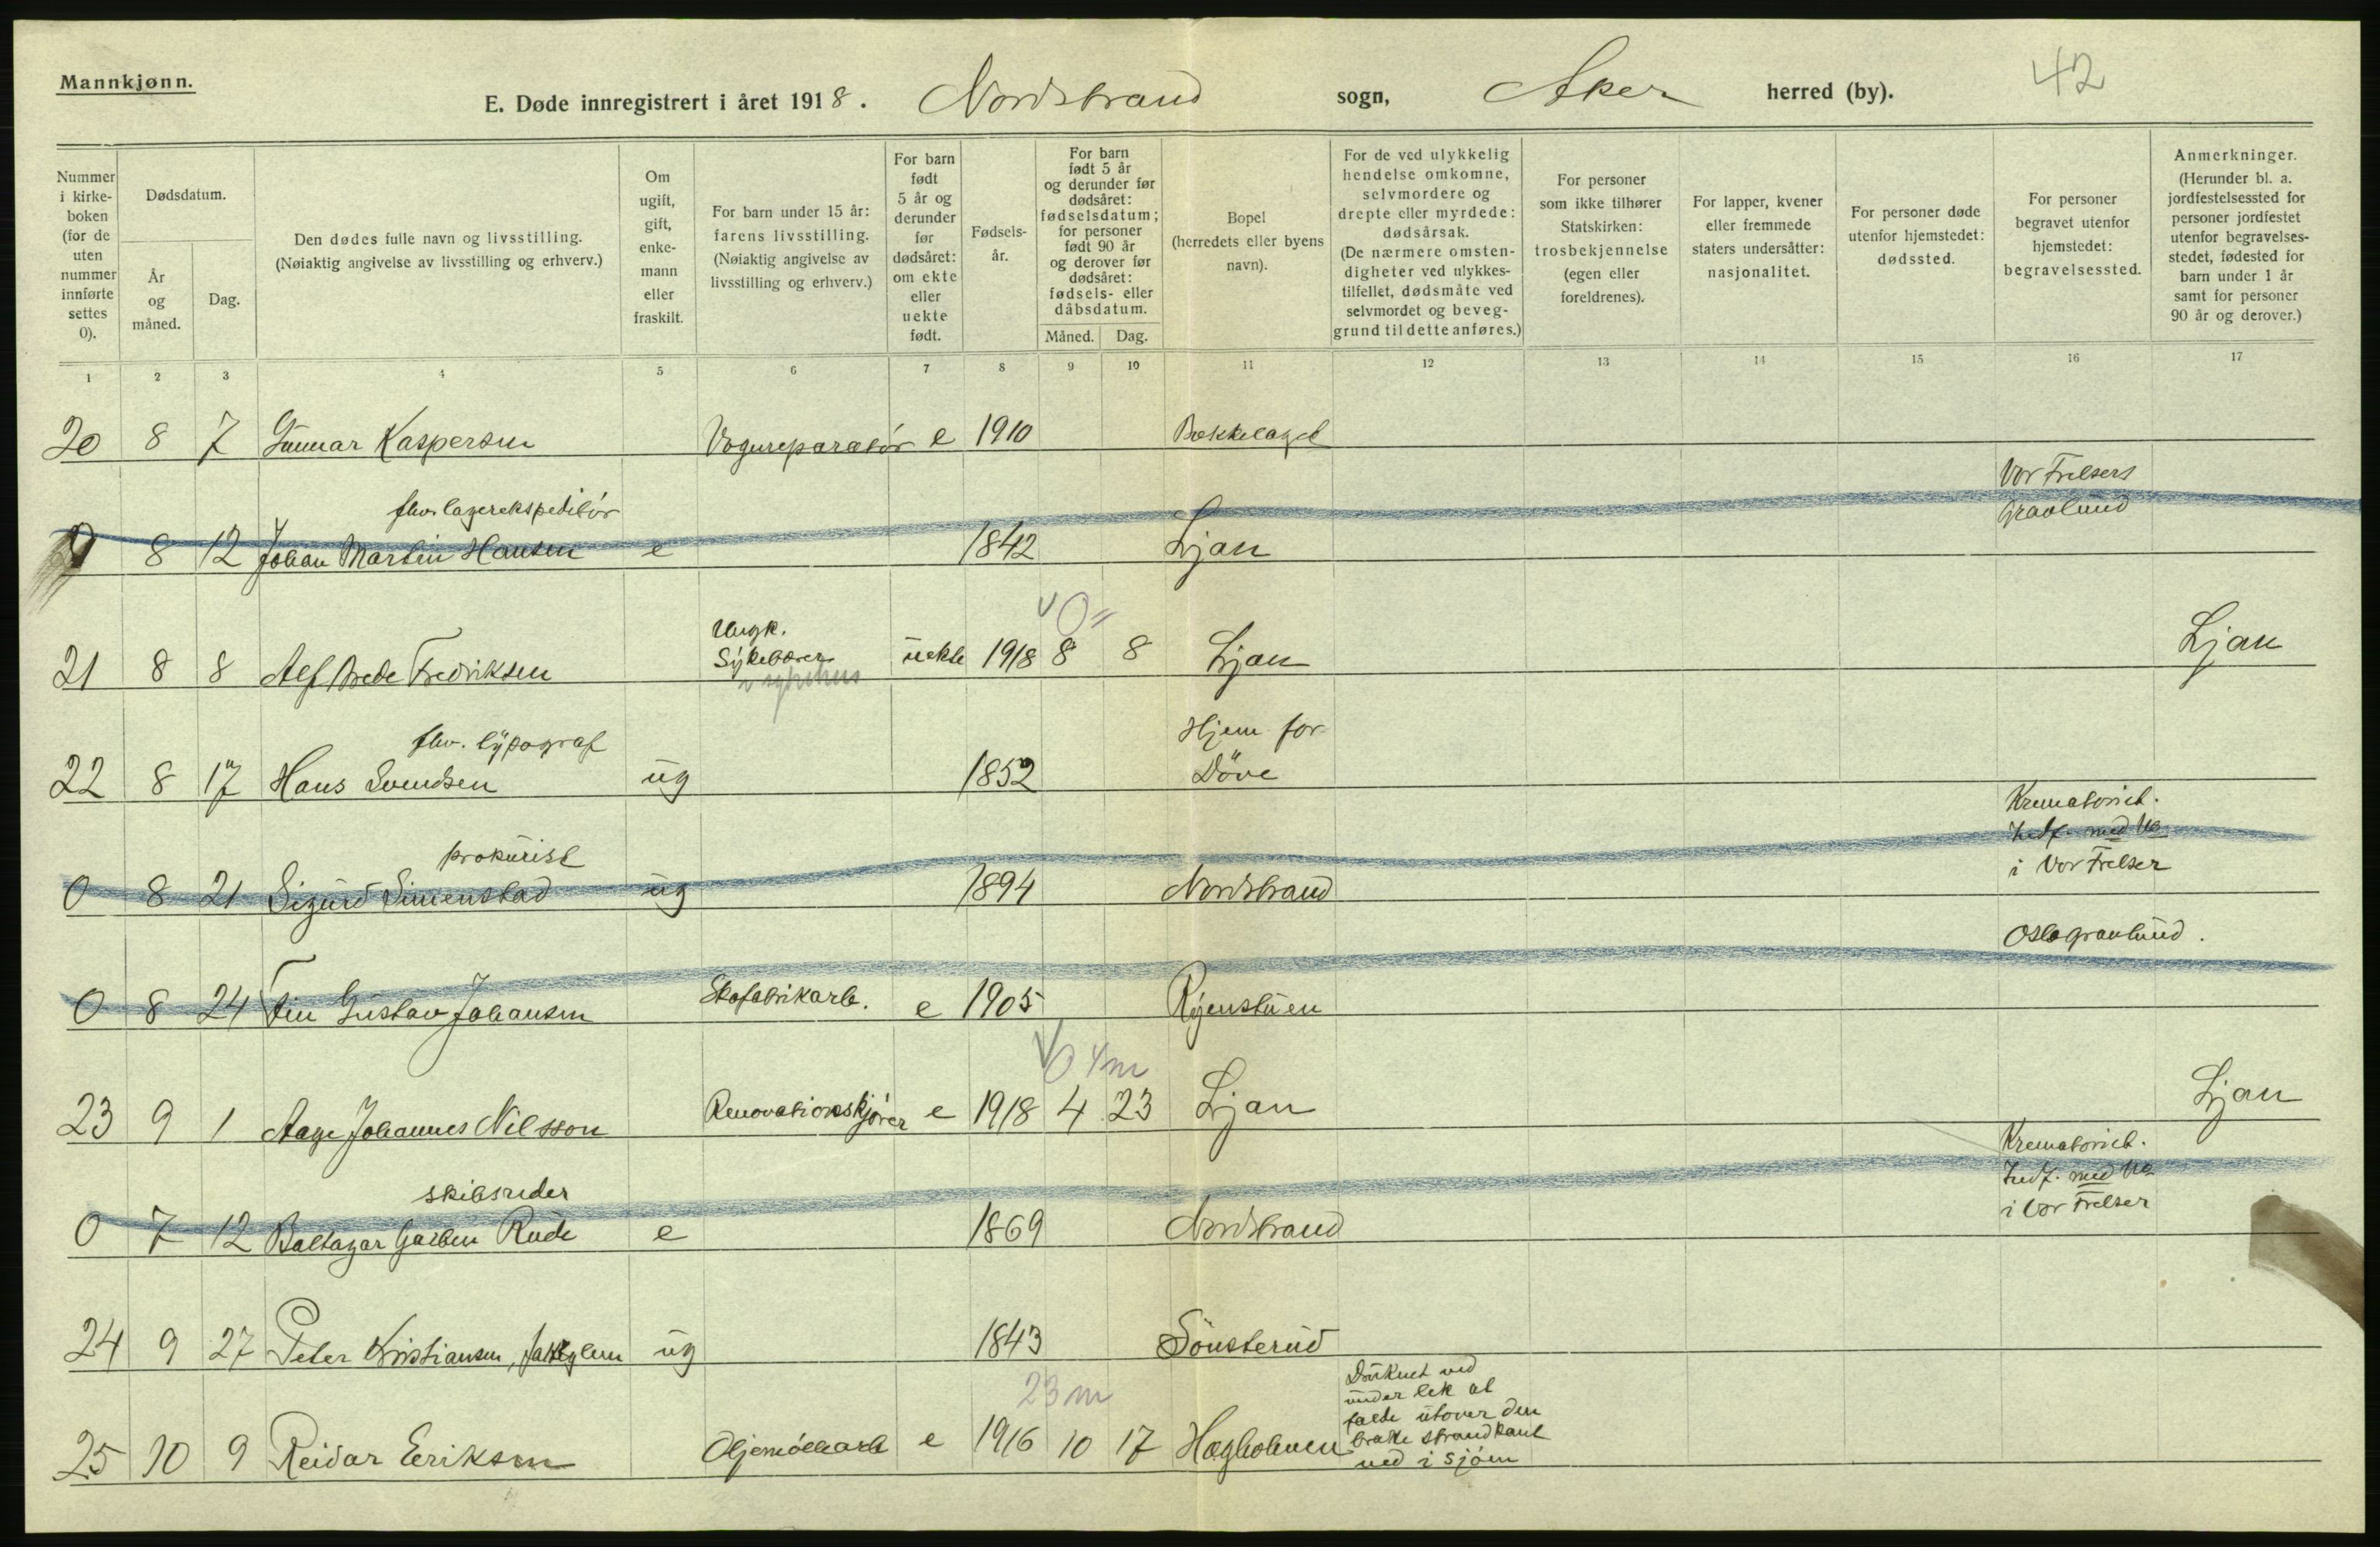 Mannkjønn.
E. Døde innregistrert i året 1918. Nordstrand sogn, Aker herred (by). 42
Nummer i kirke-boken (for de uten nummer innførte settes 0).
Dødsdatum.
År og måned.
Dag.
Den dødes fulle navn og livsstilling.
(Nøiaktig angivelse av livsstilling og erhverv.)
Om ugift, gift, enke-mann eller fraskilt.
For barn under 15 år: farens livsstilling. (Nøiaktig angivelse av livsstilling og erhverv.)
For barn født 5 år og derunder før dødsåret: om ekte eller uekte født.
Fødsels-år.
For barn født 5 år og derunder før dødsåret: fødselsdatum; for personer født 90 år og derover før dødsåret: fødsels- eller dåbsdatum.
Måned. Dag.
Bopel (herredets eller byens navn).
For de ved ulykkelig hendelse omkomne, selvmordere og drepte eller myrdede: dødsårsak. (De nærmere omsten-digheter ved ulykkes-tilfellet, dødsmåte ved selvmordet og beveg-grund til dette anføres.)
For personer som ikke tilhører Statskirken: trosbekjennelse (egen eller foreldrenes).
For lapper, kvener eller fremmede staters undersåtter: nasjonalitet.
For personer døde utenfor hjemstedet: dødssted.
For personer begravet utenfor hjemstedet: begravelsessted.
Anmerkninger. (Herunder bl. a. jordfestelsessted for personer jordfestet utenfor begravelses-stedet, fødested for barn under 1 år samt for personer 90 år og derover.)
1 2 3 4 5 6 7 8 9 10 11 12 13 14 15 16 17
20 8 7 Gunnar Kaspersen Vognreparatør e 1910 Bekkelaget
Vor Frelsers
fhv. lagerekspeditör Gravlund
0 8 12 Johan Martin Hansen e 1842 Ljan
Ungk. 0
21 8 8 Alf Brede Fredriksen Sykebærer uekte 1918 8 8 Ljan Ljan
fhv. typograf Hjem for
22 8 17 Hans Svendsen ug 1852 Döve
Krematoriet.
prokurist
i Vor Frelser
0 8 21 Sigurd Simenstad ug 1894 Nordstrand
Oslo gravlund.
0 8 24 Fin Gustav Johansen Skofabrikarb. e 1905 Ryenstuen
0 4 m
23 9 1 Aage Johannes Nilsson Renovationskjører e 1918 4 23 Ljan Ljan
Krematoriet.
skibsreder
i Vor Frelser
0 7 12 Baltazar Rude e 1869 Nordstrand
24 9 27 Peter Kristiansen, ug 1843 Sönsterud
23 m
Druknet ved
under lek at
falde utover den
bratte strandkant
ned i sjöen
25 10 9 Reidar Eriksen Oljemöllearb e 1916 10 17 Hegholmen